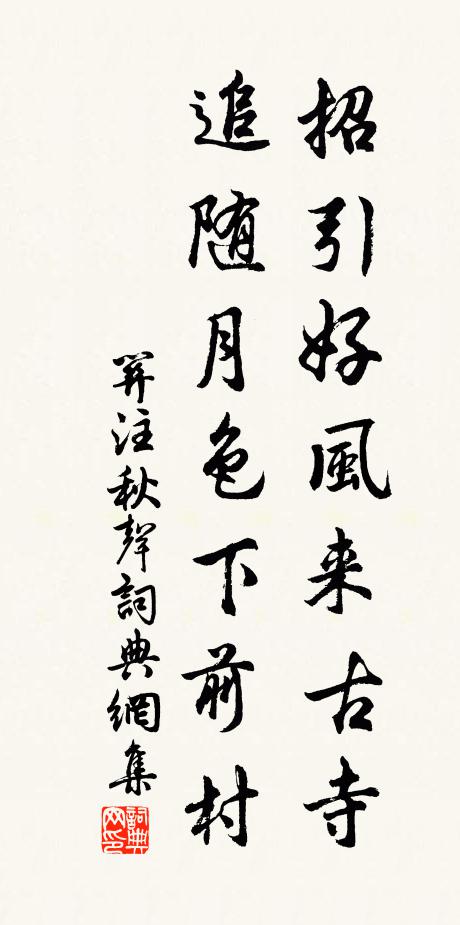 招引好風来古寺
追随月色下前村
羿注秋聲詞典網集
詞典网印